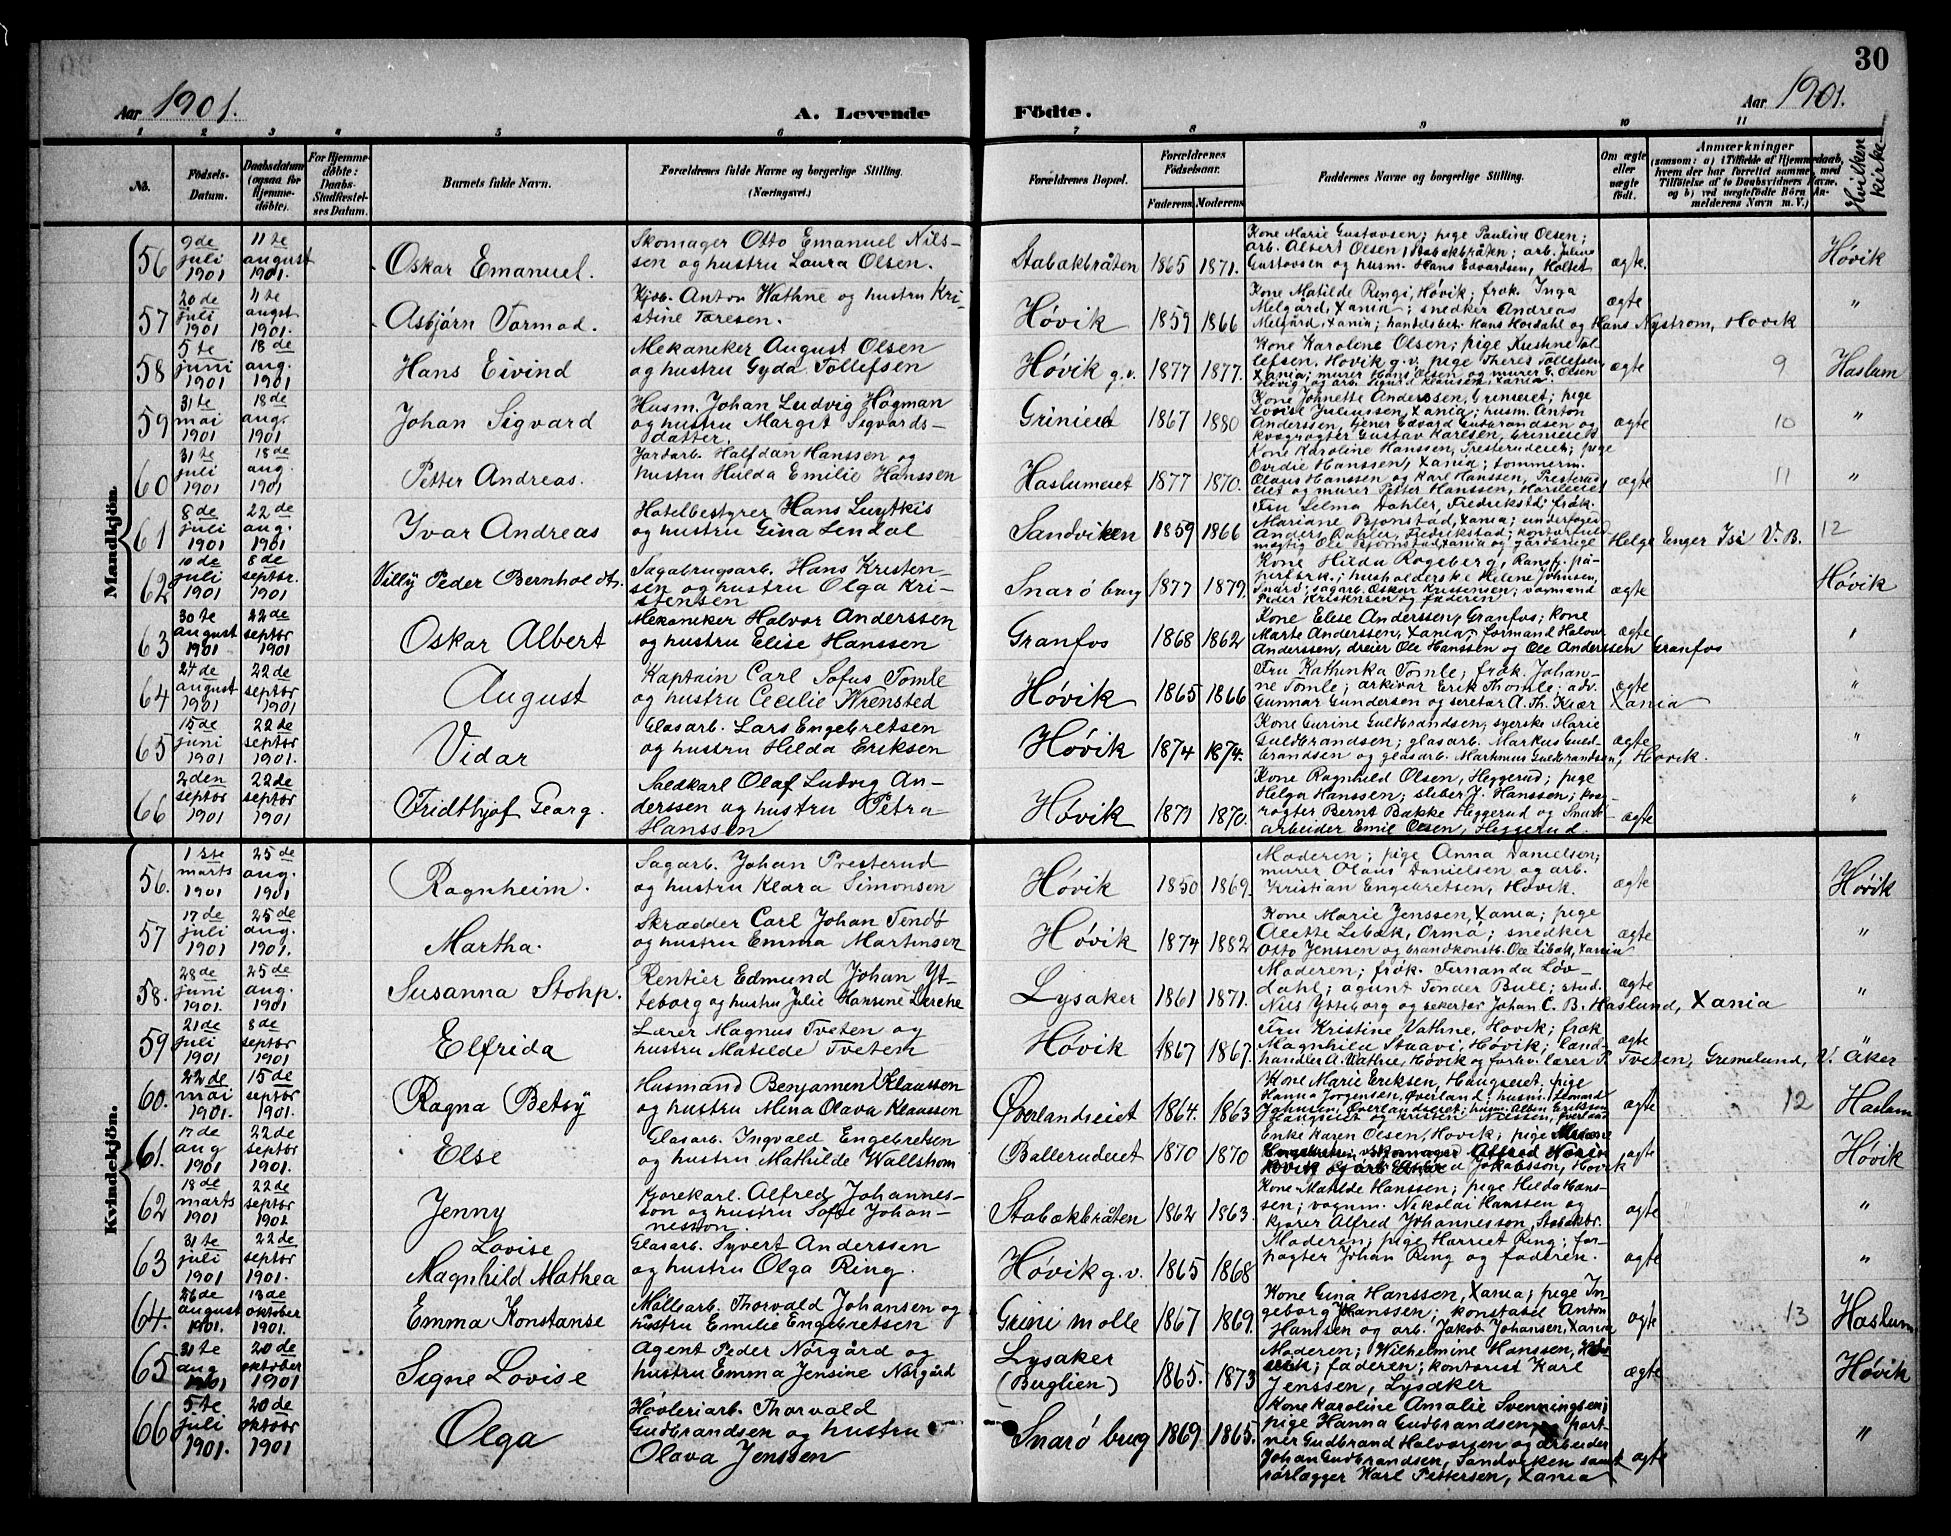 30
Aar 1901.
A. Levende
Födte.
Aar 1901.
1 2 3 4 5 6 7 8 9 10 11
No.
Födsels-
Datum.
Daabsdatum
(ogsaa for
Hjemme-
döbte).
For Hjemme-
döbte:
Daabs-
Stadfæstel-
ses Datum.
Barnets fulde Navn.
Forældrenes fulde Navne og borgerlige Stilling.
(Næringsvei.)
Forældrenes Bopæl.
Forældrenes
Födselsaar.
Faderens.
Moderens.
Faddernes Navne og borgerlige Stilling.
Om ægte
eller
uægte
födt.
Anmærkninger
(saasom: a) i Tilfælde af Hjemmedaab,
hvem der har forrettet samme, med
Tilföielse af to Daabsvidners Navne,
og b) ved uægtefödte Börn An-
melderens Navn m. V.)
Hvilken
kirke
Mandkjön.
56
9de
juli
1901
11te
august
1901.
Oskar Emanuel.
Skomager Otto Emanuel Nils-
sen og hustru Laura Olsen.
Stabækbråten
1865
1871.
Kone Marie Gustavsen; pige Paulina Olsen;
arb. Albert Olsen, Stabækbråten; arb. Julius
Gustavsen og husm. Hans Edvardsen, Holtet
ægte.
Høvik
57
20de
juli
1901
11te
augst
1901.
Asbjørn Tormod.
Kjøb. Anton Wathne og hustru Kri-
stine Toresen.
Høvik
1859
1866
Kone Matilde Ringi, Høvik; frøk. Inga
Melgård, Xania; snedker Andreas
Melgård, Xania; handelsbet. Hans Hordahl og Hans Nystrøm, Høvik
ægte
"
58
5te
juni
1901
18de
aug.
1901
Hans Eivind
Mekaniker August Olsen
og hustru Gyda Tollefsen
Høvik g.v.
1877
1877.
Kone Karolene Olsen; pige Kristine Tol-
lefsen, Høvik g.v. pige Theres Tollefsen
Xania; murer Hans Olsen og murer E. Olsen
Høvig og arb. Sigurd Klausen, Xania.
ægte
9
Haslum
59
31te
mai
1901
18de
aug.
1901
Johan Sigvard
Husm. Johan Ludvig Högman
og hustru Margit Sigvards-
datter.
Grinieiet
1867
1880
Kone Johnette Anderssen, Grinieiet; pige
Lovise Juliussen, Xania; husm. Anton
Anderssen, tjener Edvard Gutbrandsen og
kusgrøgter Gustav Karlsen, Grinieiet
ægte
10
"
60
31te
juli
1901
18de
aug.
1901
Petter Andreas.
Jordarb. Halfdan Hanssen og
hustru Hulda Emilie Hanssen
Haslumeiet
1877
1870.
Kone Karoline Hanssen, Presterudeiet; pige
Ovidie Hanssen, Xania; tømmerm.
Olaus Hanssen og Karl Hanssen, Presterud
eiet og murer Petter Hanssen, Harsleeiet
ægte
11
"
61
8de
juli
1901
22de
aug.
1901
Yvar Andreas
Hotelbestyrer Hans Luytkis
og hustru Gina Lendal
Sandviken
1859
1866
Fru Selma Dahler, Fredrikstad; frøk.
Mariane Bjønstad, Xania; underfoged
Anders Dahler, Fredrikstad; kontorfuld-
mægtig Ole Bjønstad, Xania og gårdbruger Helge Enger Isi V. B.
12
62
10de
juli
1901
8de
septbr.
1901
Villy Peder Bernholdt.
Sagbrugsarb. Hans Kristen-
sen og hustru Olga Kri-
stensen
Snarø brug
1877
1879.
Kone Hilda Rogeberg, Ransfj. pa-
pirfabrk.; husholderske Helene Johnsen,
Snarø; sagarb. Oskar Kristensen; vognmand
Peder Kristensen og faderen
ægte
Høvik
63
30te
august
1901
22de
septbr
1901
Oskar Albert
Mekaniker Halvor Anderssen
og hustru Elise Hanssen
Granfos
1868
1862
Kone Elise Anderssen, Granfos; kone
Marte Anderssen, Xania; formand Halvor
Anderssen, dreier Ole Hanssen og Ole Anderssen Granfos
ægte
"
64
24de
august
1901
22de
septbr
1901
August
Kaptain Carl Sofus Tomle
og hustru Cecilie Wrensted
Høvik
1865
1866
Fru Kathinka Tomle; frøk. Johan-
ne Tomle; arkivar Erik Thomle; adv.
Gunnar Gundersen og seretær A. Th. Kiær Xania
ægte
"
65
15de
juni
1901
22de
septbr
1901.
Vidar
Glasarb. Lars Engebretsen
og hustru Hilda Eriksen
Høvik
1874
1874.
Kone Gurine Guldbrandsen, syerske Marie
Guldbrandsen; glasarb. Markus Guld-
brandsen og glasarb. Martinus Guldbrandsen, Høvik.
ægte
"
66
2den
septbr
1901
22de
septbr
1901
Fridthjof Georg.
Saldkarl Olaf Ludvig An-
derssen og hustru Petra
Hanssen
Høvik
1871
1870.
Kone Ragnhild Olsen, Heggerud; pige
Helga Hanssen; sliber J. Hanssen; kvæg-
røgter Bernt Bakke Heggerud og Smaa-
arbeider Emil Olsen, Heggerud.
ægte
"
Kvindekjön.
56.
1ste
marts
1901
25de
aug.
1901
Ragnheim.
Sagarb. Johan Presterud
og hustru Klara Simonsen
Høvik
1850
1869.
Moderen; pige Anna Danielsen;
murer Olaus Danielsen og arb.
Kristian Engebretsen, Høvik.
ægte
Høvik
57
17de
juli
1901
25de
aug.
1901.
Martha.
Skrædder Carl Johan Tendt
og hustru Emma Martinsen
Høvik
1874
1882
Kone Marie Jenssen, Xania; pige
Alette Libak, Ormø; snedker
Otto Jenssen og brandkonstb. Ole Libak, Xania
ægte
"
58.
28de
juni
1901.
25de
aug.
1901
Susanna Stohp.
Rentier Edmund Johan Yt-
teborg og hustru Julie Hansine Lerche
Lysaker
1861
1871.
Moderen; frøk. Fernanda Løv-
dahl; agent Tønder Bull; stud.
Nils Ytteborg og sekertær Johan C. B. Haslund, Xania
ægte
"
59
21de
juli
1901
8de
septbr
1901
Elfrida
Lærer Magnus Tveten og
hustru Matilde Tveten
Høvik
1867
1867.
Fru Kristine Vathne, Høvik; frøk
Magnhild Staavi, Høvik; land-
handler A. Wathne, Høvik og forhv. lærer P. Tveten, Gremelund, V. Aker
ægte
60.
22de
mai
1901.
15de
septbr
1901.
Ragna Betsy
Husmand Benjamen Klaussen
og hustru Mina Olava Klaussen
Øverlandseiet
1864.
1863
Kone Marie Eriksen, Haugseiet; pige
Hanna Jørgensen, Øverland; husm. Leonard
Johnsen, Øverlandseiet; husm. Olsen Eriksen
Haugseiet og Kristen Nilssen, Øverland
ægte
12
Haslum
61.
17de
aug
1901
22de
septbr
1901.
Else
Glasarb. Ingvald Engebretsen
og hustru Mathilde Wallstrøm
Ballerudeiet
1870
1870
Enke Karen Olsen, Høvik; pige
Skomager Alfred
Høvik og arb. Jakobsson, Høvik
ægte
Høvik
62
18de
marts
1901
22de
septbr
1901
Jenny
Kjørekarl. Alfred Johannes-
son og hustru Sofie Johan-
nesson.
Stabækbråten
1862
1863.
Kone Matilde Hanssen; pige Hilda Hans-
sen; vognm. Nikolai Hanssen og
kjører Alfred Johannesson, Stabækbr.
ægte
"
63
31te
juli
1901
22de
septbr
1901.
Lovise
Magnhild Mathea
Glasarb. Syvert Anderssen
og hustru Olga Ring.
Høvik g.v.
1865
1868
Moderen; pige Harriet Ring; for-
pagter Johan Ring og faderen.
ægte
"
64.
26de
august
1901.
13de
oktober
1901.
Emma Konstanse
Mølleearb. Thorvald Johansen og
hustru Emilie Engebretsen
Grini mølle
1867
1869.
Kone Gina Hanssen, Xania; pige In-
geborg Johanssen; konstabel Anton
Hanssen og arb. Jakob Johansen, Xania
ægte
13
Haslum
65
31te
aug
1901
20de
oktober
1901
Signe Lovise
Agent Peder Nörgård og
hustru Emma Jensine Nörgård
Lysaker
(Buglien)
1865.
1873
Moderen; Wilhelmine Hanssen,
faderen; kontorist Karl
Jenssen, Lysaker
ægte
Høvik
66
5te
juli
1901.
20de
oktober
1901
Olga
Høvleriarb. Thorvald
Gudbrandsen og hustru
Olava Jenssen
Snarø brug
1869
1865.
Kone Karoline Amalie Svenningsen;
pige Hanna Gudbrandsen; port-
ner Gudbrand Halvorsen og arbeider
Johan Gudbrandsen, Sandviken samt
rørlægger Karl Pettersen, Xania
ægte
"